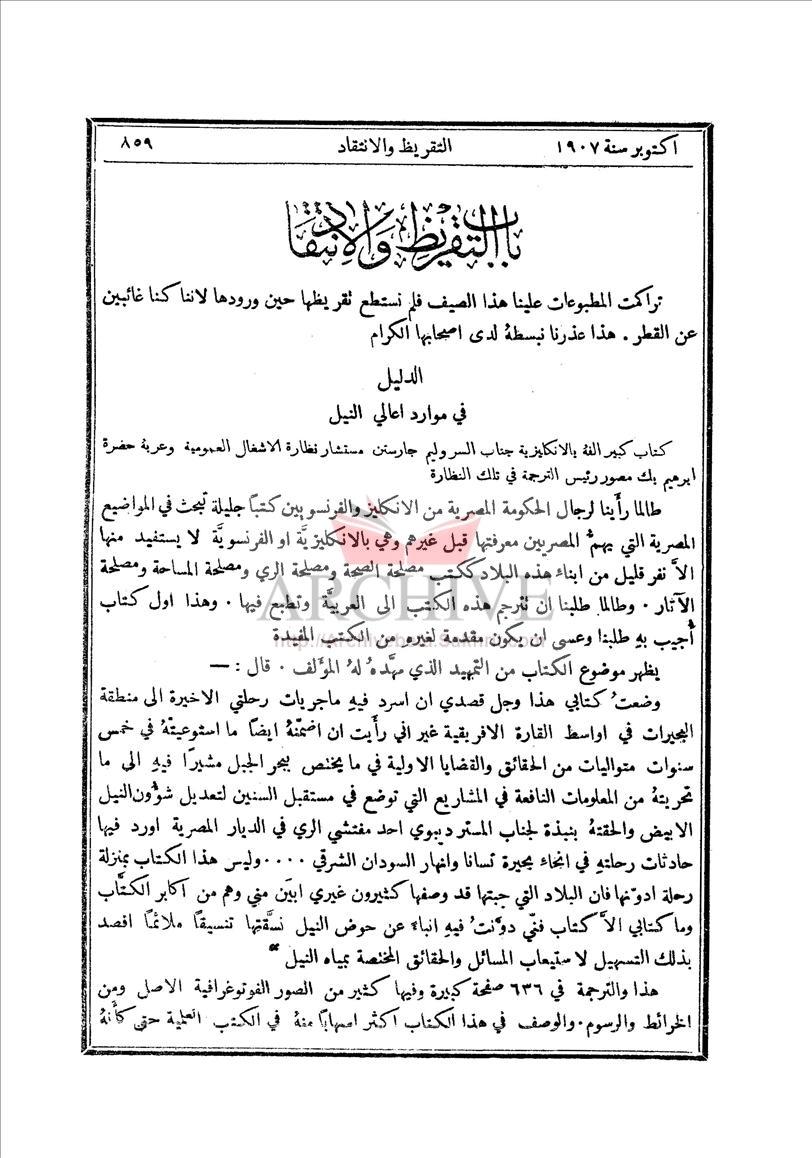 اكتوبر سنة ١٩٠٧ التقريظ والانتقاد ٨٥٩
باب التقريظ والانتقاد
تراكمت المطبوعات علينا هذا الصيف فلم نستطع نقريظها حين ورودها لاننا كنا غائبين
عن القطر . هذا عذرنا نبسطهُ لدى اصحابها الكرام
الدليل
في موارد اعالي النيل
كتاب كبير الفهُ بالانكليزية جناب السر وليم جارستن مستشار نظارة الاشغال العمومية وعربهُ حضرة
ابرهيم بك مصور رئيس الترجمة في تلك النظارة
طالما رأينا لرجال الحكومة المصرية من الانكليز والفرنسويين كتباً جليلة تبحث في المواضيع
المصرية التي يهمُّ المصريين معرفتها قبل غيرهم وهي بالانكليزيَّة او الفرنسويَّة لا يستفيد منها
الاَّ نفر قليل من ابناء هذه البلاد ككتب مصلحة الصحة ومصلحة الري ومصلحة المساحة ومصلحة
الآثار . وطالما طلبنا ان تترجم هذه الكتب الى العربيَّة وتطبع فيها . وهذا اول كتاب
أجيب بهِ طلبنا وعسى ان يكون مقدمة لغيره من الكتب المفيدة
ARCHIVE
يظهر موضوع الكتاب من التمهيد الذي مهَّدهُ لهُ المؤلف . قال : —
وضعتُ كتابي هذا وجل قصدي ان اسرد فيهِ ماجريات رحلتي الاخيرة الى منطقة
البحيرات في اواسط القارة الافريقية غير اني رأيت ان اضمّنهُ ايضاً ما استوعيتهُ في خمس
سنوات متواليات من الحقائق والقضايا الاولية في ما يختص ببحر الجبل مشيراً فيهِ الى ما
تحريتهُ من المعلومات النافعة في المشاريع التي توضع في مستقبل السنين لتعديل شؤون النيل
الابيض والحقتهُ بنبذة لجناب المستر ديبوي احد مفتشي الري في الديار المصرية اورد فيها
حادثات رحلتهِ في انحاء بحيرة تسانا وانهار السودان الشرقي ....وليس هذا الكتاب بمنزلة
رحلة ادونها فان البلاد التي جبتها قد وصفها كثيرون غيري ابين مني وهم من اكابر الكتَّاب
وما كتابي الاَّ كتاب فنّي دوَّنتُ فيهِ انباءً عن حوض النيل نسَّقتها تنسيقاً ملائماً اقصد
بذلك التسهيل لاستيعاب المسائل والحقائق المختصة بمياه النيل "
هذا والترجمة في ٦٣٦ صفحة كبيرة وفيها كثير من الصور الفوتوغرافية الاصل ومن
الخرائط والرسوم . والوصف في هذا الكتاب اكثر اسهاباً منهُ في الكتب العلمية حتى كأَنهُ